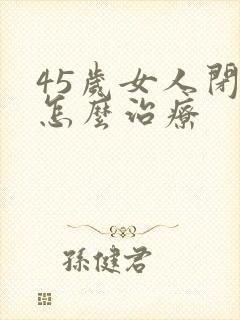 45歲女人閉
怎麼治療
孫健君